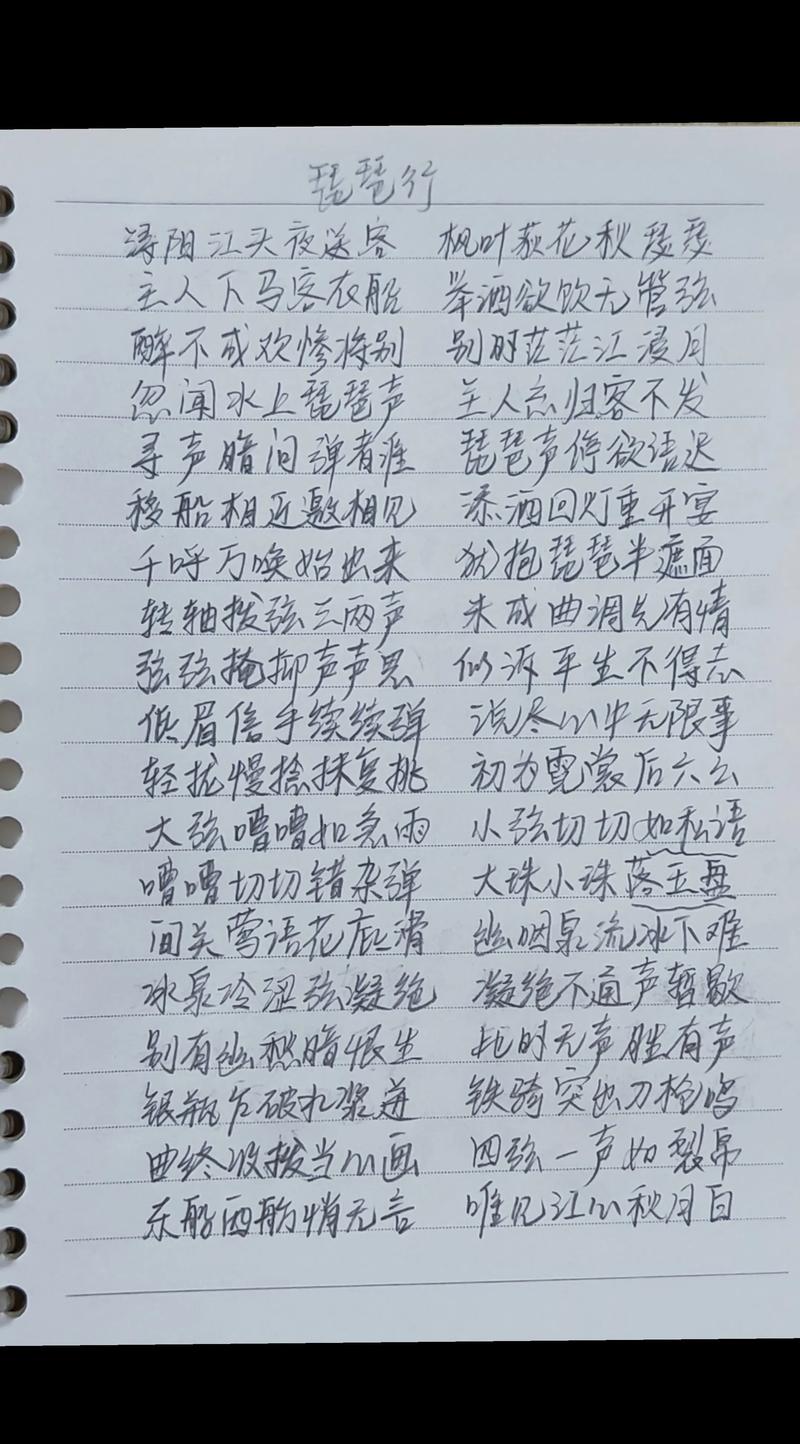 琵琶行
浔阳江头夜送客 枫叶荻花秋瑟瑟
主人下马客衣船 举酒欲饮无管弦
醉不成欢惨将别 别时茫茫江浸月
忽闻水上琵琶声 主人忘归客不发
寻声暗问弹者谁 琵琶声停欲语迟
移船相近邀相见 添酒回灯重开宴
千呼万唤始出来 犹抱琵琶半遮面
转轴拨弦三两声 未成曲调先有情
弦弦掩抑声声思 似诉平生不得志
低眉信手续续弹 说尽心中无限事
轻拢慢捻抹复挑 初为霓裳后六幺
大弦嘈嘈如急雨 小弦切切如私语
嘈嘈切切错杂弹 大珠小珠落玉盘
间关莺语花底滑 幽咽泉流冰下难
冰泉冷涩弦凝绝 凝绝不通声暂歇
别有幽愁暗恨生 此时无声胜有声
银瓶乍破水浆迸 铁骑突出刀枪鸣
曲终收拨当心画 四弦一声如裂帛
东船西舫悄无言 唯见江心秋月白